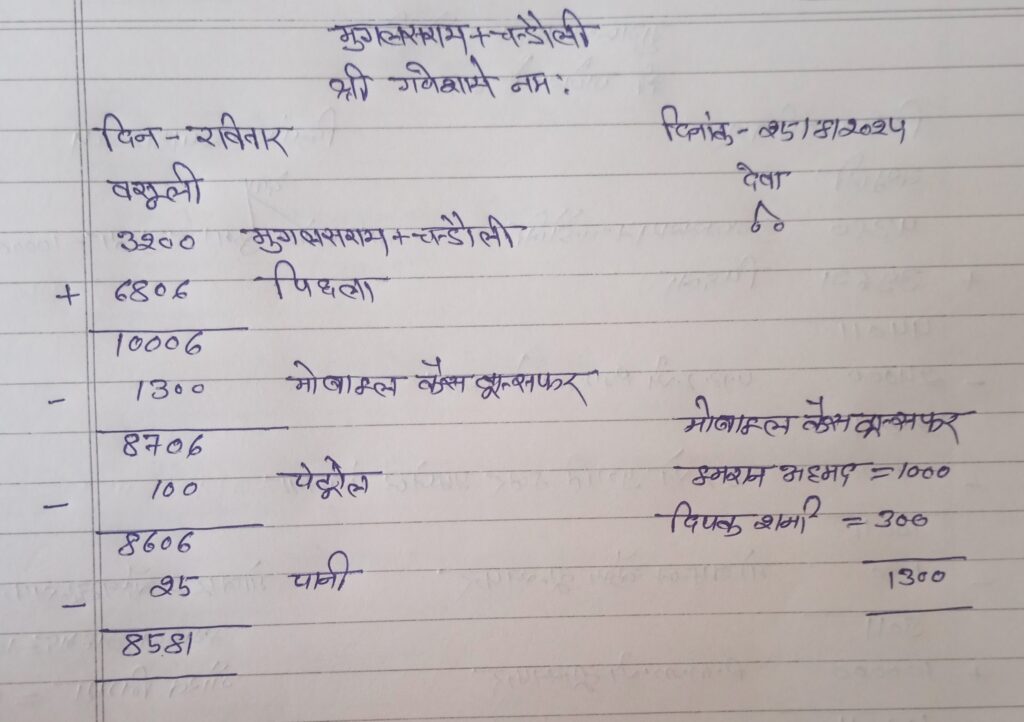 मुगलसराय+चन्डौली
श्री गणेशाये नमः
दिन - रविवार
दिनांक - 25/8/2024
वसूली
देवा
3200 मुगलसराय+चन्डौली
+ 6806 पिछला
10006
- 1300 मोबाइल कैस ट्रान्सफर
8706
मोबाइल कैस ट्रान्सफर
- 100 पेट्रोल
इमरान अहमद = 1000
8606
दिपक शर्मा = 300
- 25 पानी
1300
8581